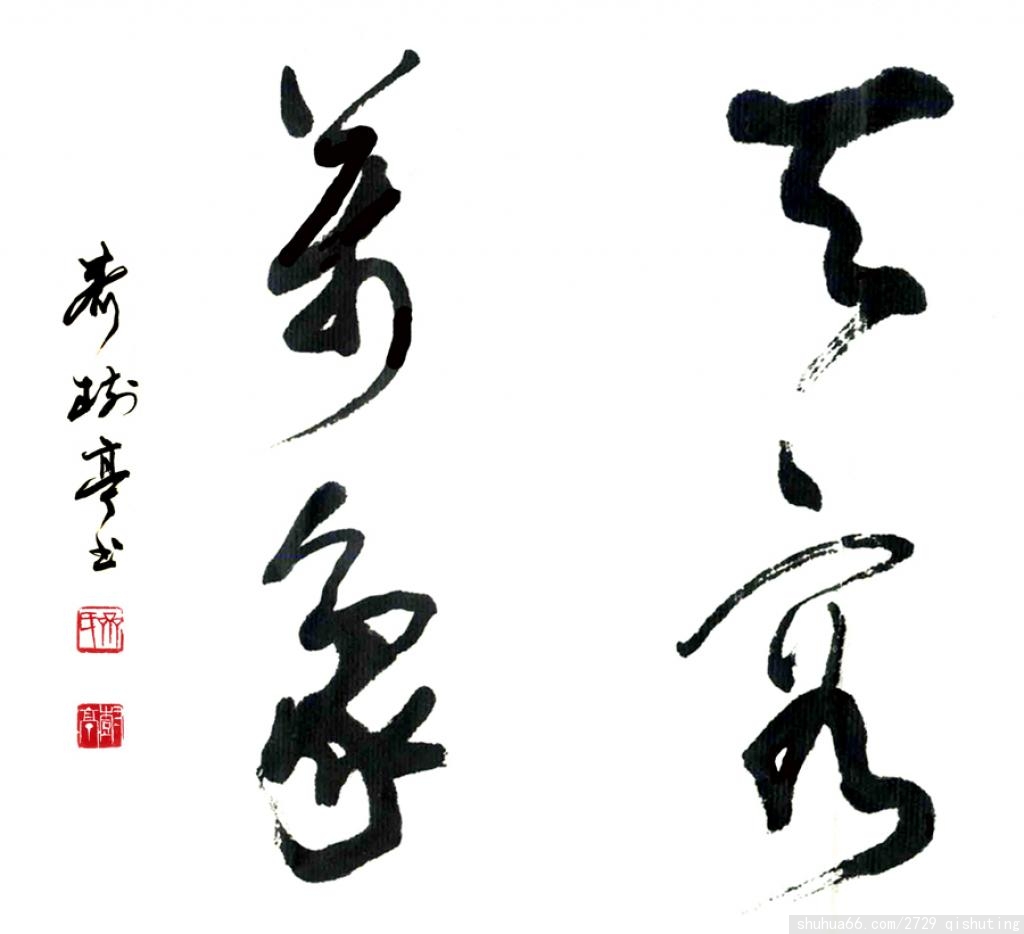 天容
萬象
齊樹亭书
齊氏
樹亭
shuhua66.com/2729 qishuting